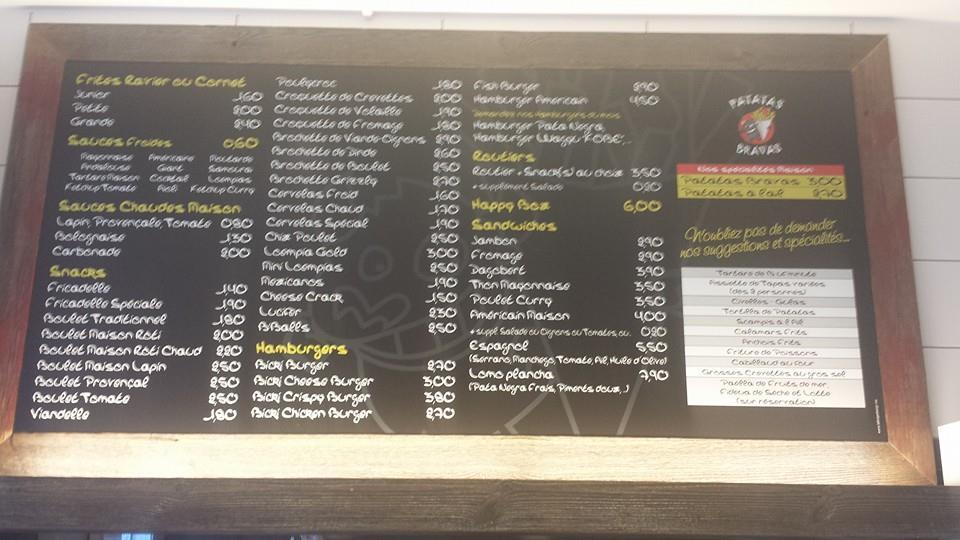 Frites Ravier ou Cornet
Junior 1,60
Petite 2,00
Grande 2,40
Sauces Froides 0,60
Mayonnaise Américaine Moutarde
Andalouse Giant Samouraï
Tartare Maison Cocktail Loempia
Ketchup Tomate Aïoli Ketchup Curry
Sauces Chaudes Maison
Lapin, Provençale, Tomate 0,80
Bolognaise 1,30
Carbonade 2,00
Snacks
Fricadelle 1,40
Fricadelle Spéciale 1,90
Boulet Traditionnel 1,80
Boulet Maison Roti 2,00
Boulet Maison Roti Chaud 2,20
Boulet Maison Lapin 2,50
Boulet Provençal 2,50
Boulet Tomate 2,50
Viandelle 1,80
1,80
Croquette de Crevettes 2,00
Croquette de Volaille 1,90
Croquette de Fromage 1,80
Brochette de Viande Oignons 2,90
Brochette de Dinde 2,60
Brochette de Boulet 2,50
Brochette Grizzly 2,70
Cervelas Froid 1,60
Cervelas Chaud 1,70
Cervelas Spécial 1,90
Chix Poulet 2,50
Loempia Gold 3,00
Mini Loempias 2,50
Mexicanos 1,90
Cheese Crack 1,50
Lucifer 2,30
B.Balls 2,50
Hamburgers
Bicky Burger 2,70
Bicky Cheese Burger 3,00
Bicky Crispy Burger 3,80
Bicky Chicken Burger 2,70
Fish Burger 2,90
Hamburger Américain 4,50
Demandez nos Hamburgers du mois
Hamburger Pata Negra
Hamburger Wagyu KOBE,..
Routiers
Routier + Snack(s) au choix 3,50
+ supplément Salade 0,20
Happy Box 6,00
Sandwiches
Jambon 2,90
Fromage 2,90
Dagobert 3,90
Thon Mayonnaise 3,50
Poulet Curry 3,50
Américain Maison 4,00
+ suppl. Salade ou Oignons ou Tomates ou. 0,20
Espagnol 5,50
(Serrano, Manchego, Tomate, Ail, Huile d'Olive)
Lomo plancha 7,90
(Pata Negra Frais, Piments doux,..)
PATATAS
BRAVAS
Nos spécialités Maison
Patatas Bravas 3,00
Patatas à l'ail 2,70
N'oubliez pas de demander
nos suggestions et spécialités...
Tartare de
Assiette de Tapas variées
(dès 2 personnes)
Civelles - Gulas
Tortilla de Patatas
Scampis à l'Ail
Calamars Frits
Anchois Frits
Friture de Poissons
Cabillaud au four
Grosses Crevettes au gros sel
Paëlla de Fruits de mer,
Fideua de Seche et Lotte
(sur réservation)